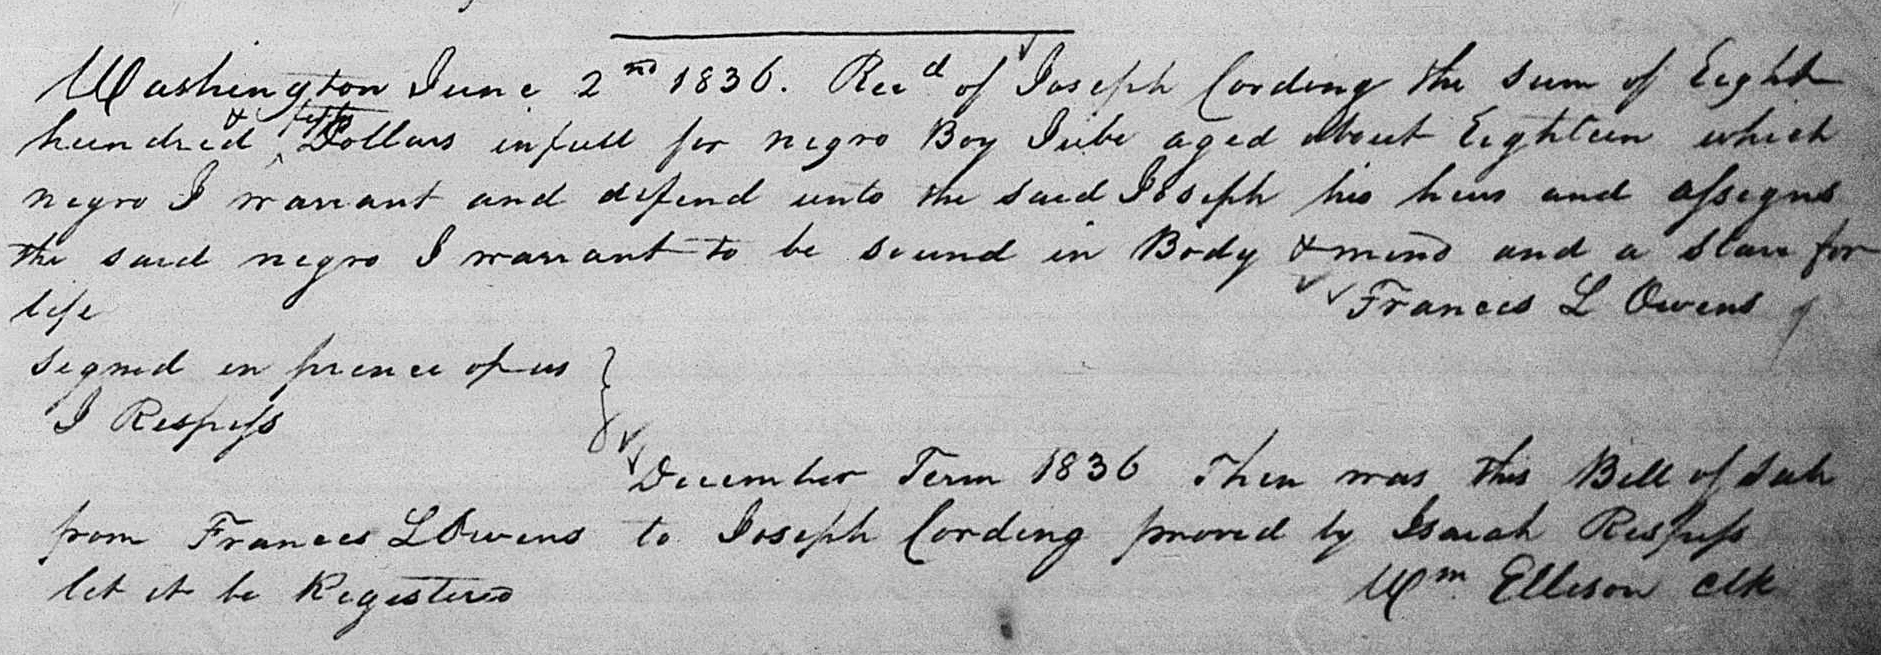 Washington June 2nd 1836. Recd of Joseph Cording the sum of Eight
hundred & fifty Dollars in full for negro Boy Jube aged about Eighteen which
negro I warrant and defend unto the said Joseph his heirs and assigns
the said negro I warrant to be sound in Body & mind and a Slave for
life Francis L Owens
signed in presence of us
I Respess
December Term 1836 Then was this Bill of Sale
from Frances L Owens to Joseph Cording proved by Isaiah Respess
let it be Registered Wm. Ellison clk